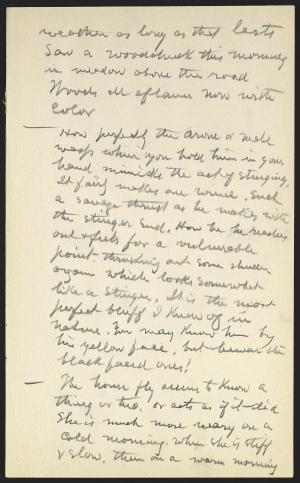 weather as long as that lasts
Saw a woodchuck this morning
in meadow above the road
Woods all aflame now with
color
— How perfectly the drone or male
wasp when you hold him in your
hand mimicks the act of stinging,
It fairly makes one wince, such
a savage thrust as he makes with
the stinger end. How he he reaches
out & feels for a vulnerable
point - thrusting out some slender
organ which looks somewhat
like a stinger. It is the most
perfect bluff I know of in
nature. You may know him by
his yellow face, but beware the
black faced ones!
— The house fly seems to know a
thing or two, or acts as if it did
She is much more wary on a
cold morning, when she is stiff
& slow, then on a warm morning